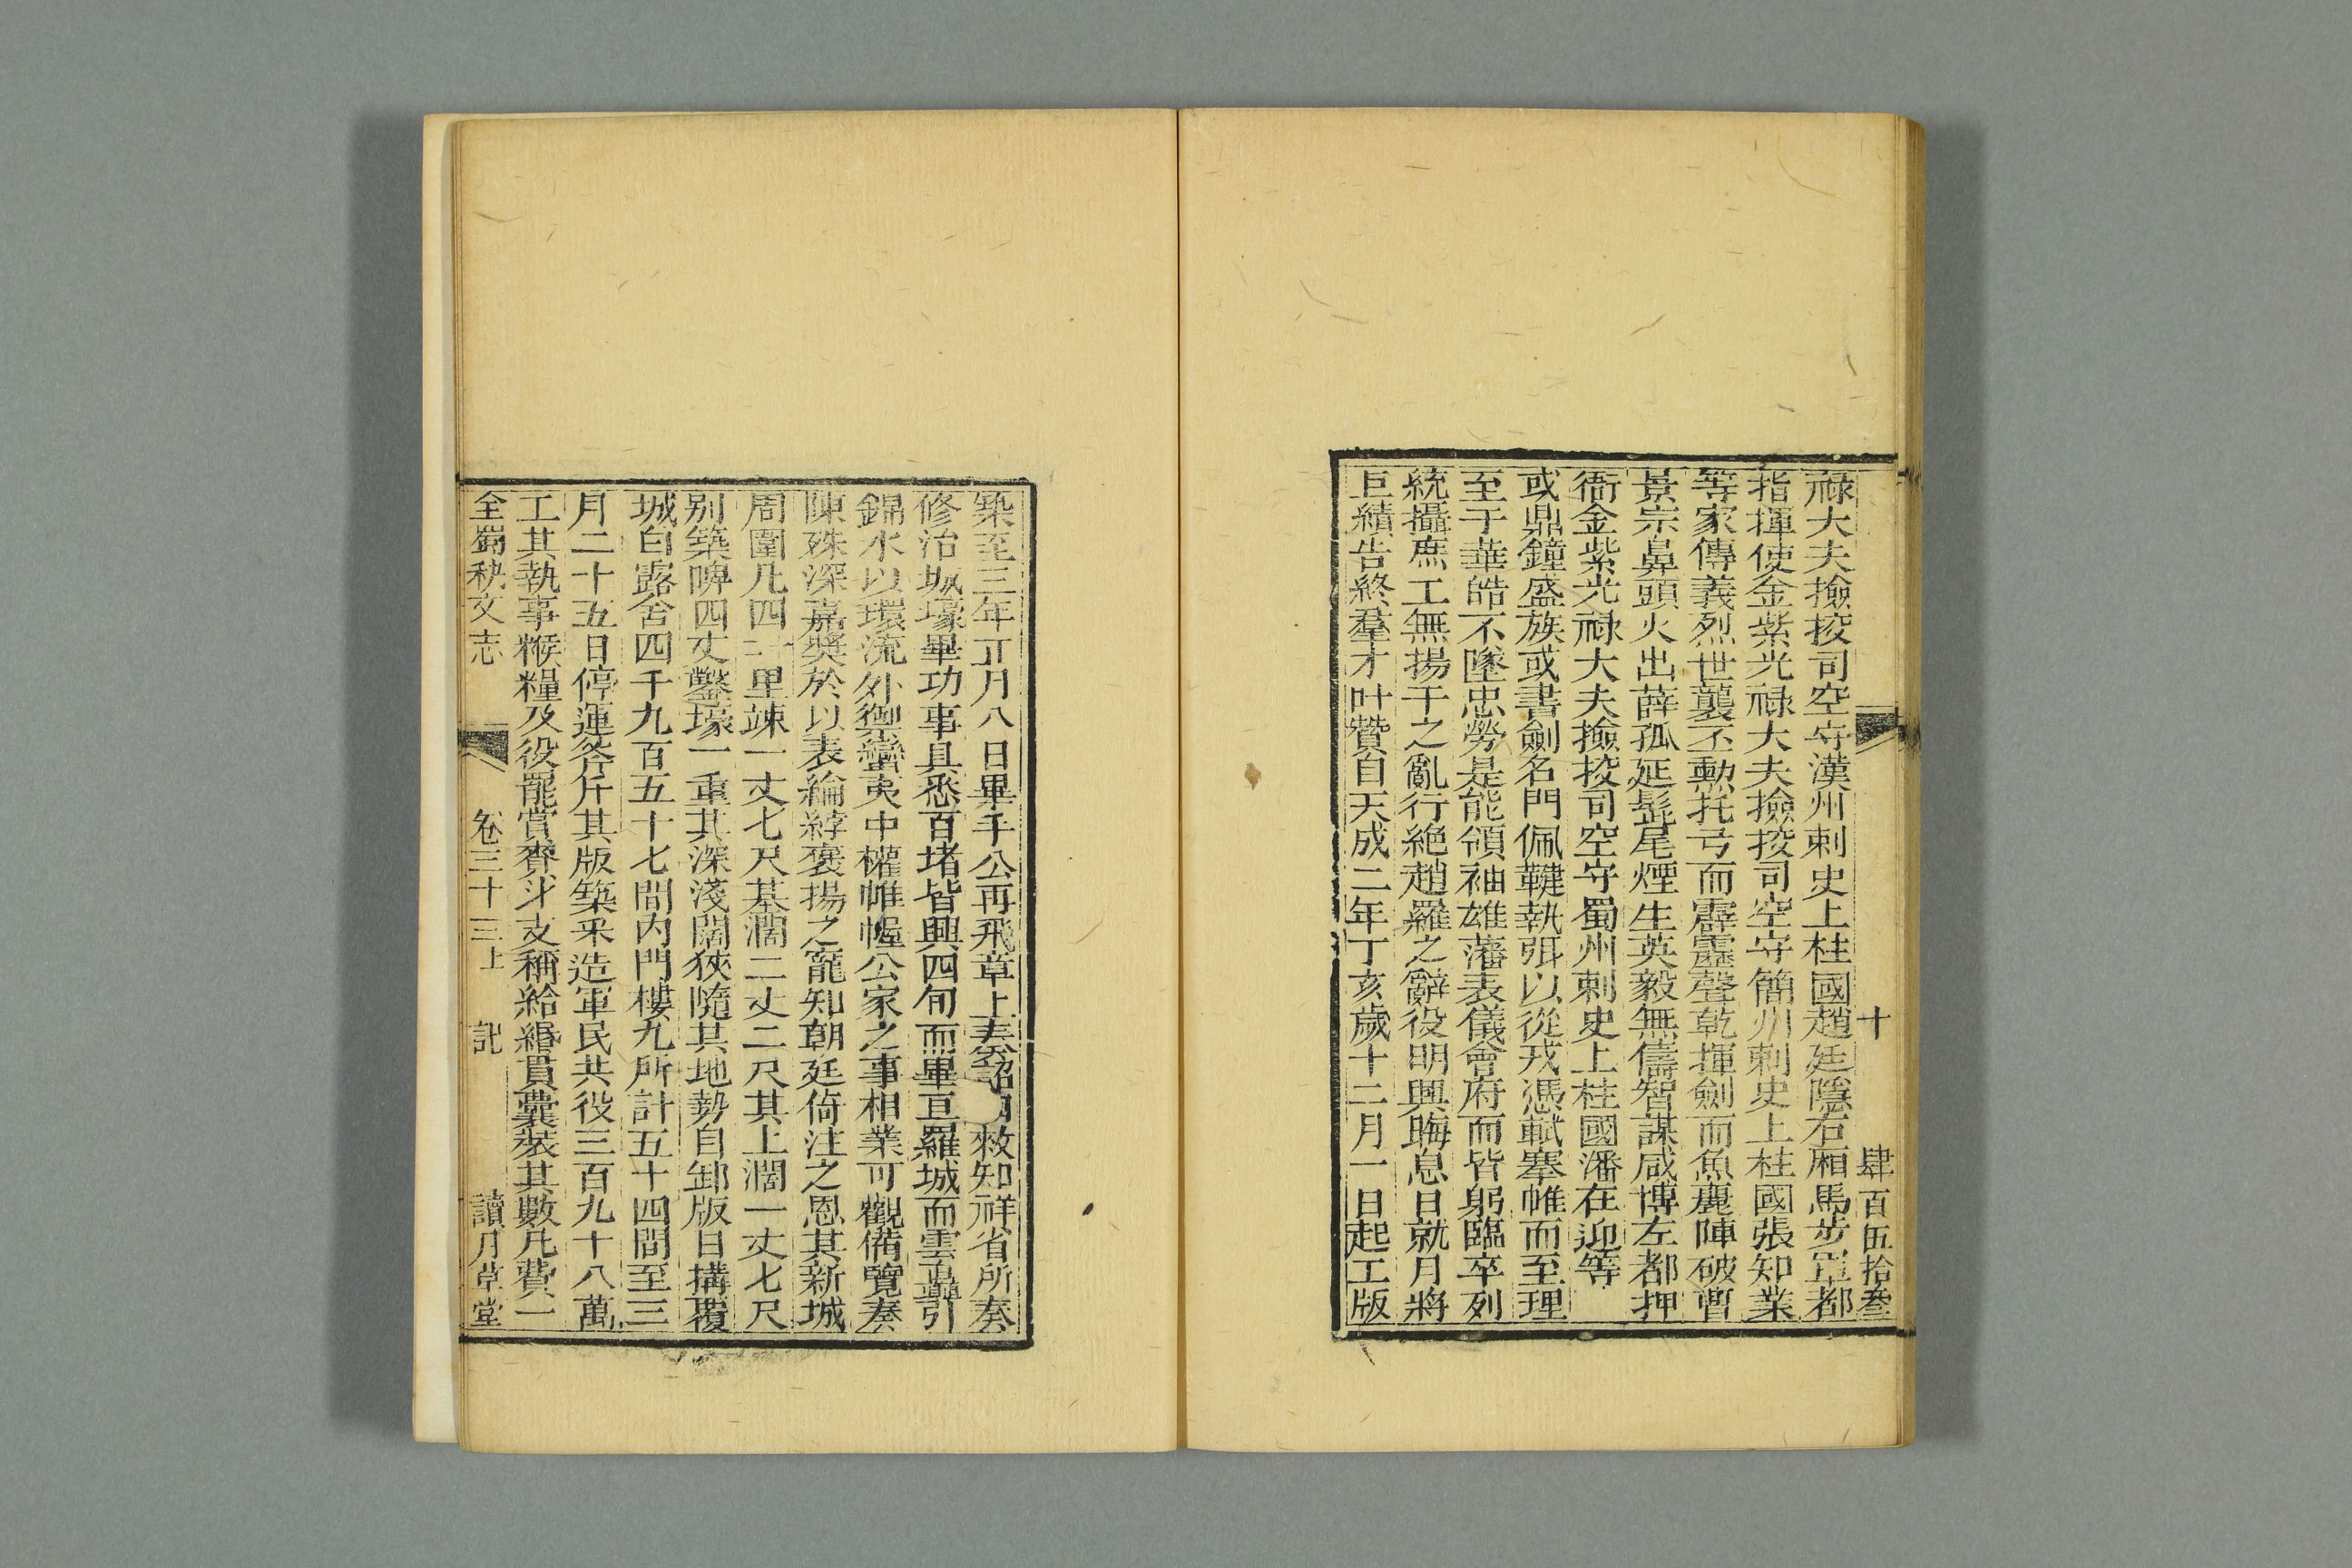 十 肆百伍拾叁
祿大夫撿挍司空守漢州刺史上柱國趙廷隱右厢馬步軍都
指揮使金紫光祿大夫撿挍司空守簡州刺史上柱國張知業
等家傳義烈世襲丕勳托弓而霹靂聲乾揮劍而魚麗陣破曹
景宗鼻頭火出薛孤延髭尾煙生英毅無儔智謀咸博左都押
衙金紫光祿大夫撿挍司空守蜀州刺史上柱國潘在迎等
或鼎鐘盛族或書劍名門佩鞬執弭以從戎憑軾搴帷而至理
至于華皓不墜忠勞是能領袖雄藩表儀會府而皆躬臨卒列
統攝庶工無揚干之亂行絕趙羅之辭役明興晦息日就月將
巨績告終羣才叶贊自天成二年丁亥歲十二月一日起工版
築至三年正月八日畢手公再飛章上奏詔敕知祥省所奏
修治城壕畢功事具悉百堵皆興四旬而畢亘羅城而雲矗引
錦水以環流外禦蠻夷中權帷幄公家之事相業可觀備覽奏
陳殊深嘉奬於以表綸綍褒揚之寵知朝廷倚注之恩其新城
周圍凡四十里竦一丈七尺基濶二丈二尺其上濶一丈七尺
别築陴四丈鑿壕一重其深淺闊狹隨其地勢自卸版日搆覆
城白露舍四千九百五十七間内門樓九所計五十四間至三
月二十五日停運斧斤其版築采造軍民共役三百九十八萬
工其執事糇糧及役罷賞賚斗支稱給緡貫囊裝其數凡費一
全蜀秇文志 卷三十三上 記 讀月草堂